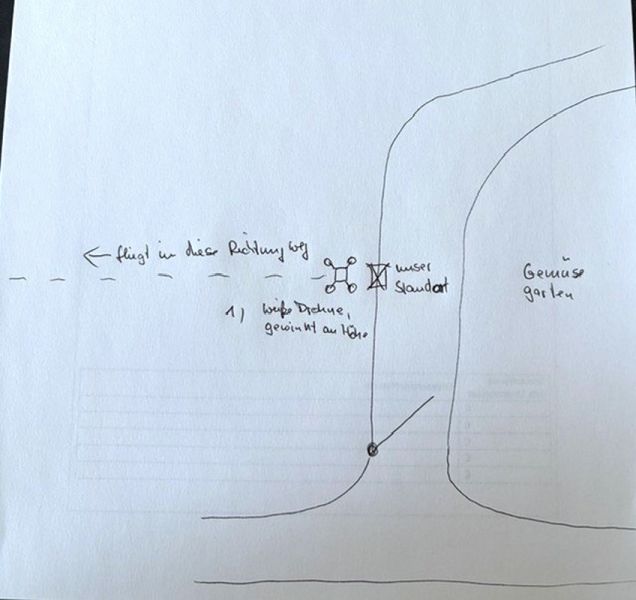 ← fliegt in diese Richtung weg
unser
Standort
Gemüse
garten
1) weiße Drohne,
gewinnt an Höhe